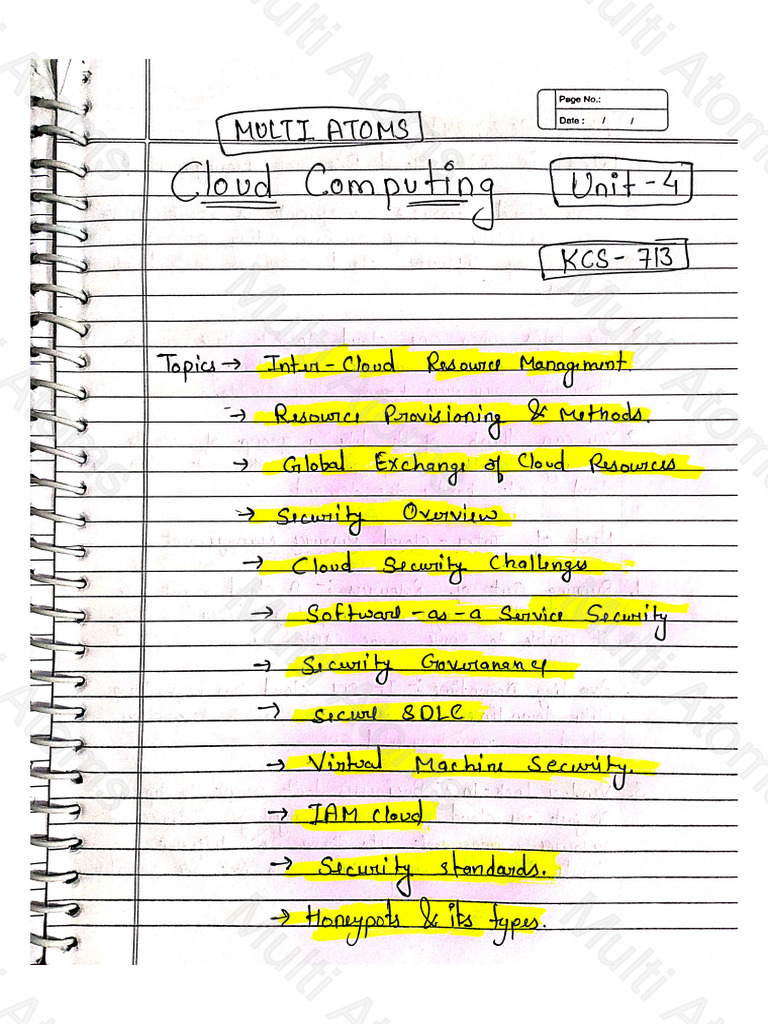 Page No.:
Date : / /
MULTI ATOMS
Cloud Computing Unit-4
KCS-713
Topics → Inter-Cloud Resource Management.
→ Resource Provisioning & Methods.
→ Global Exchange of Cloud Resources
→ Security Overview
→ Cloud Security Challenges
→ Software-as-a Service Security
→ Security Goveranance
→ Secure SDLC
→ Virtual Machine Security.
→ IAM cloud
→ Security standards.
→ Honeypots & its types.
Multi Atoms